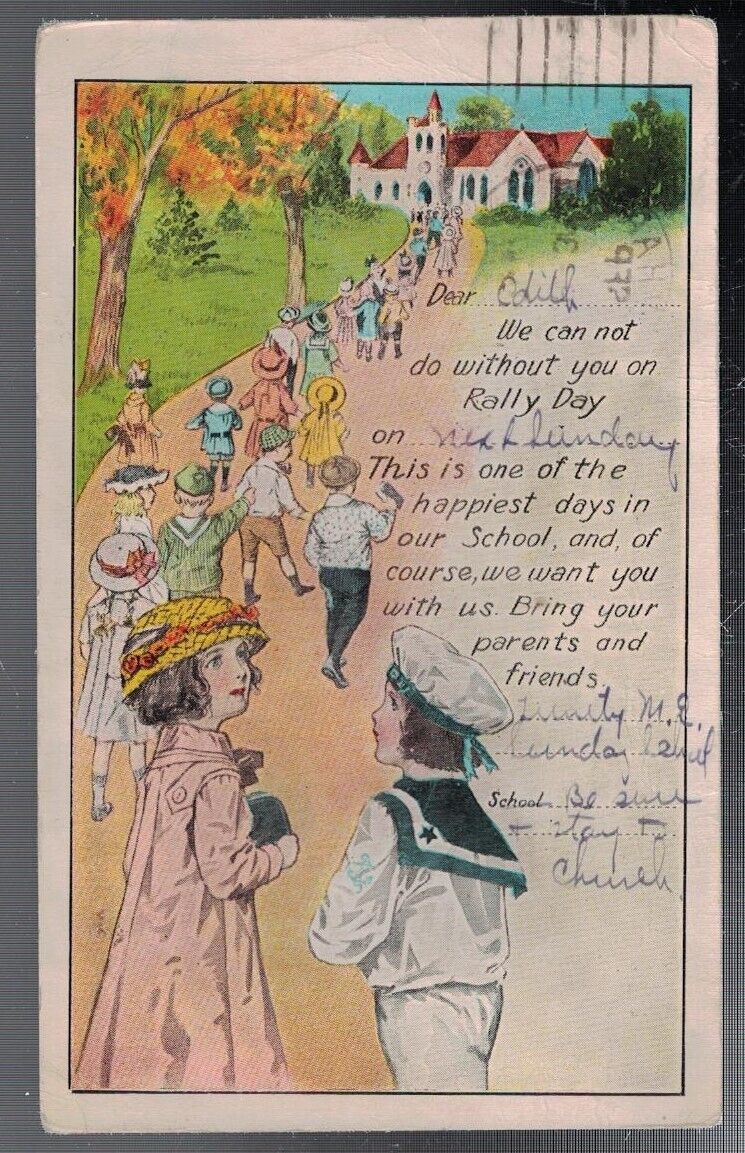 Dear Edith
We can not
do without you on
Rally Day
on next Sunday
This is one of the
happiest days in
our School, and, of
course, we want you
with us. Bring your
parents and
friends.
Trinity M. E.
Sunday School
School Be sure
+ stay to
Church